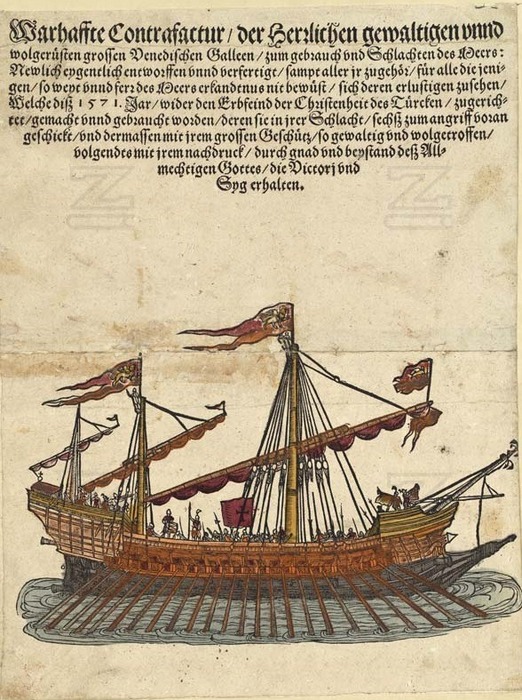 Warhaffte Contrafactur / der Herrlichen gewaltigen vnnd
wolgerüsten grossen Venedischen Galleen / zum gebrauch vnd Schlachten des Meers:
Newlich eygentlich entworffen vnnd verfertigt / sampt aller jr zugehör / für alle die jeni-
gen / so weyt vnnd fer des Meers erkandtnus nit bewüst / sich deren erlustigen zusehen /
Welche diß 1571. Jar / wider den Erbfeind der Christenheit des Türcken / zugerich-
tet / gemacht vnnd gebraucht worden / deren sie in jrer Schlacht / sechß zum angriff voran
geschickt / vnd dermassen mit jrem grossen Geschütz / so gewaltig vnd wolgetroffen /
volgendts mit jrem nachdruck / durch gnad vnd beystand deß All-
mechtigen Gottes / die Victorj vnd
Syg erhalten.